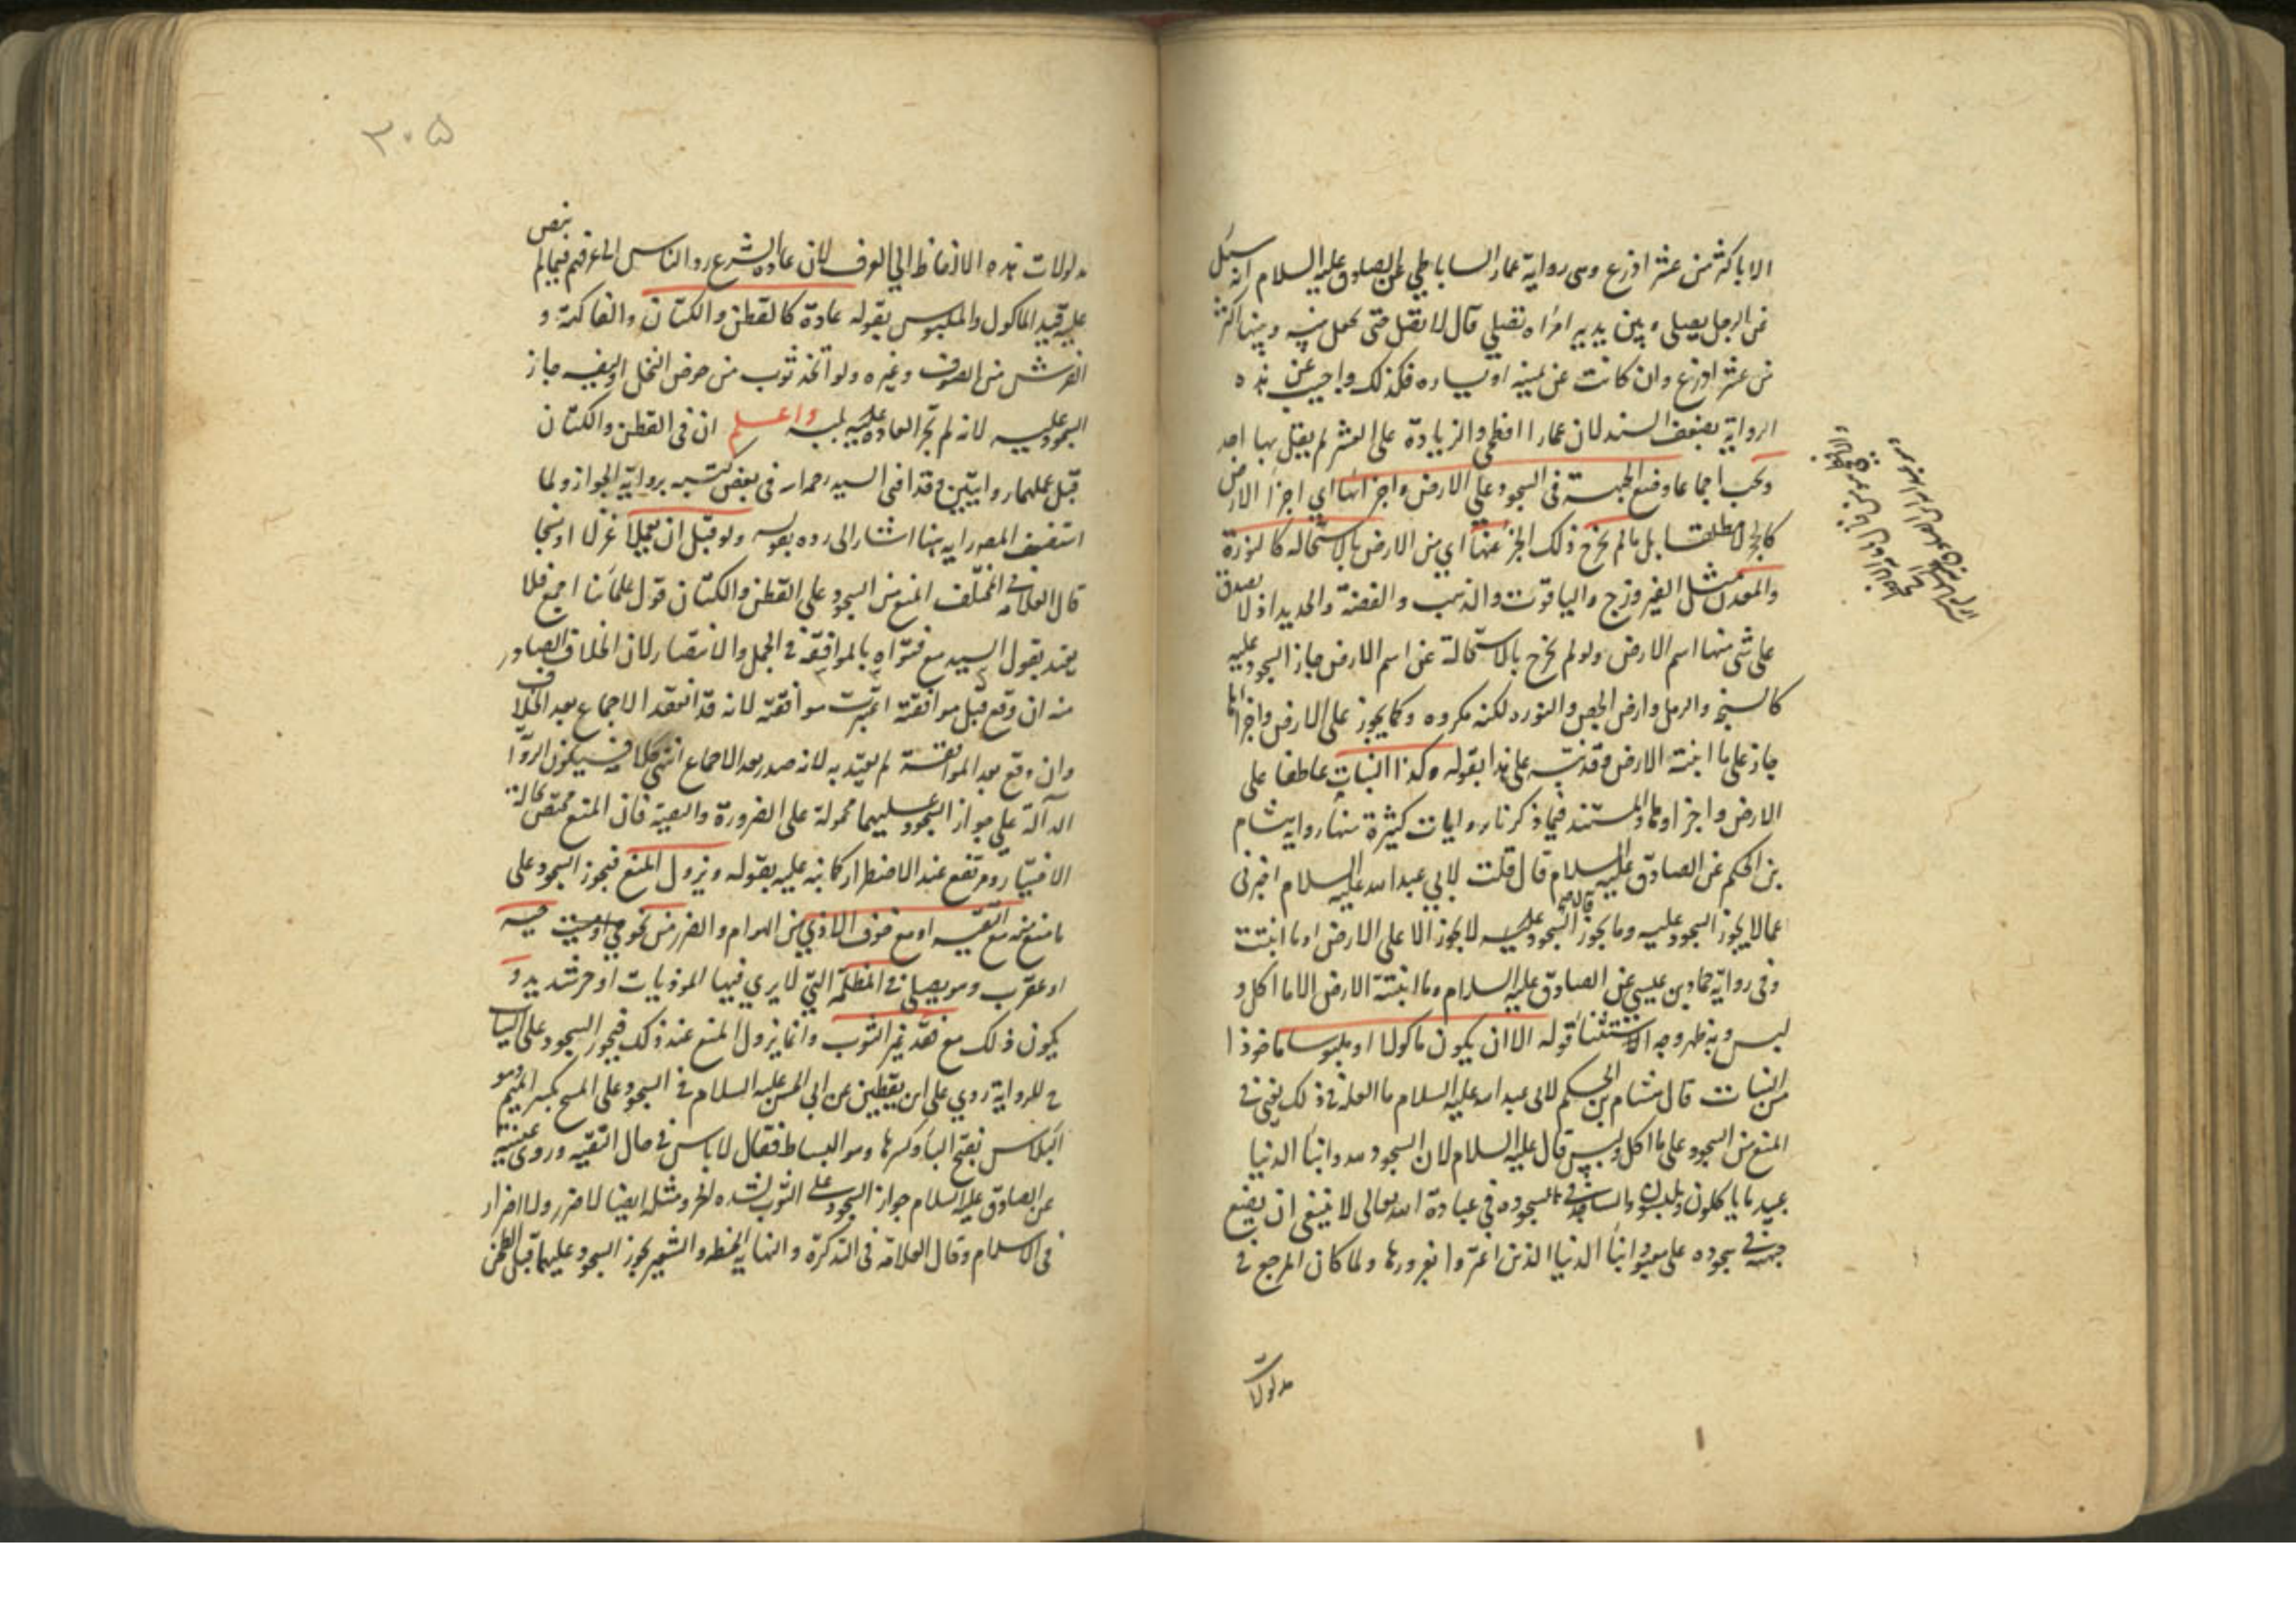 الا باكثر من عشر اذرع وهى رواية عمار الساباطي عن الصادق عليه السلام انه سئل
عن الرجل يصلي وبين يديه امراه تصلي قال لا تقبل حتى يجعل بينه وبينها اكثر
من عشر اذرع وان كانت عن يمينه او يساره فكذلك واجيب عن هذه
الرواية بضعف السند لان عمارا افطحي والزيادة على العشر لم يقل بها احد
ويجب اجماعا وضع الجبهة فى السجود علي الارض واجزائها اي اجزا الارض
كالحجر لا مطلقا بل ما لم يخرج ذلك الجز عنها اي من الارض بالاستحالة كالنورة
والمعدن مثل الفيروزج والياقوت والذهب والفضة والحديد اذ لا يصدق
على شي منها اسم الارض ولو لم يخرج بالاستحالة عن اسم الارض جاز السجود عليه
كالسبخ والرمل وارض الجص والنوره لكنه مكروه وكما يجوز علي الارض واجزائها
جاز على ما انبتته الارض وقد نبه على هذا بقوله وكذا النبات عاطفا على
الارض واجزاوها والمستند فيما ذكرنا روايات كثيرة منها رواية هشام
بن الحكم عن الصادق عليه السلام قال قلت لابي عبد الله عليه السلام اخبرنى
عما لا يجوز السجود عليه وما يجوز السجود عليه قال لا يجوز الا على الارض او ما انبتت
وفى رواية حماد بن عيسي عن الصادق عليه السلام وما انبتته الارض الا ما اكل و
لبس وبه ظهر وجه الاستثنا قوله الا ان يكون ماكولا او ملبوسا ماخوذا
من النبات قال هشام بن الحكم لابى عبد الله عليه السلام ما العلة فى ذلك يعني فى
المنع من السجود على ما اكل ولبس قال عليه السلام لان السجود لله وابنا الدنيا
عبيد ما ياكلون ويلبسون والساجد فى سجوده في عبادة الله تعالى لا ينبغى ان يضع
جبهته فى سجوده على معبود ابنا الدنيا الذين اغتروا بغرورها ولما كان المرجع فى
مدلولات
٣٠٥
مدلولات هذه الالفاظ الي العرف لان عادة الشرع رد الناس الى عرفهم فيما لم ينص
عليه قيد الماكول والملبوس بقوله عادة كالقطن والكتان والفاكهة و
الفرش من الصوف وغيره ولو اتخذ ثوب من خوص النخل او ليفه جاز
السجود عليه لانه لم تجر العادة عليه بلبسه واعلم ان فى القطن والكتان
قبل عملهما روايتين وقد افتى السيد رحمه الله فى بعض كتبه برواية الجواز ولما
استضعف المصنف رحمه الله هنا اشار الى رده بقوله ولو قبل ان يعملا غزلا او نسجا
قال العلامة فى المختلف المنع من السجود على القطن والكتان قول علمائنا اجمع فلا
يعتد بقول السيد مع فتواه بالموافقة فى الجمل والانتصار لان الخلاف الصادر
منه ان وقع قبل موافقته اعتبرت موافقته لانه قد انعقد الاجماع بعد الخلاف
وان وقع بعد الموافقة لم يعتد به لانه صدر بعد الاجماع انتهى كلامه فيكون الروايات
الدالة على جواز السجود عليهما محمولة على الضرورة والتقية فان المنع مختص بحالة
الاختيار ومرتفع عند الاضطرار كما نبه عليه بقوله ويزول المنع فيجوز السجود على
ما منع منه مع التقيه او مع خوف الاذي من الهوام والضرر من نحو حي او ميت حيه
او عقرب وهو يصلي فى المظلمة التي لا يري فيها الموذيات او حر شديد و
يكون ذلك مع فقد غير الثوب وانما يزول المنع عند ذلك فيجوز السجود على الثياب
ح للرواية روي علي ابن يقطين عن ابي الحسن عليه السلام فى السجود على المسح بكسر الميم وهو
البلاس بفتح البا وكسرها وهو البساط فقال لا باس فى حال التقيه وروى عيينة
عن الصادق عليه السلام جواز السجود على الثوب لشدة الحر ومثله ايضا لا ضرر ولا اضرار
فى الاسلام وقال العلامة فى التذكرة والنهاية الحنطه والشعير يجوز السجود عليهما قبل الطحن